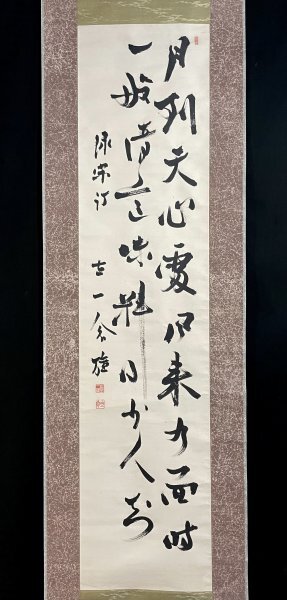 月到天心處風来水面時
一般清意味料得少人知
録宋詩